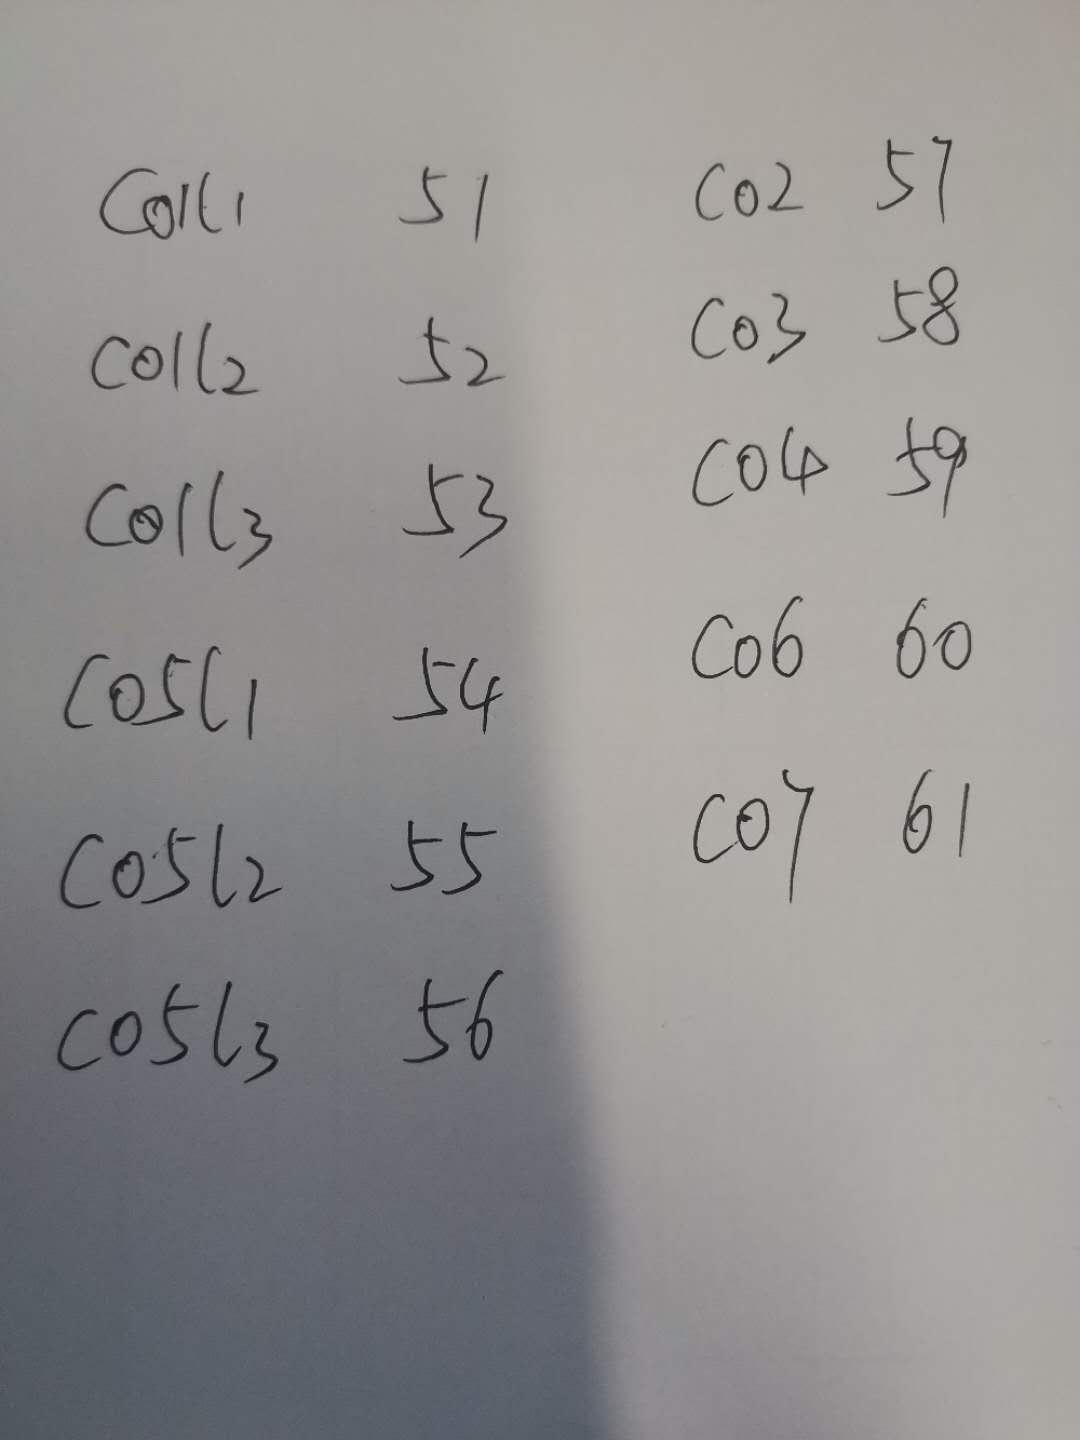 C01L1 51
C01L2 52
C01L3 53
C05L1 54
C05L2 55
C05L3 56
C02 57
C03 58
C04 59
C06 60
C07 61